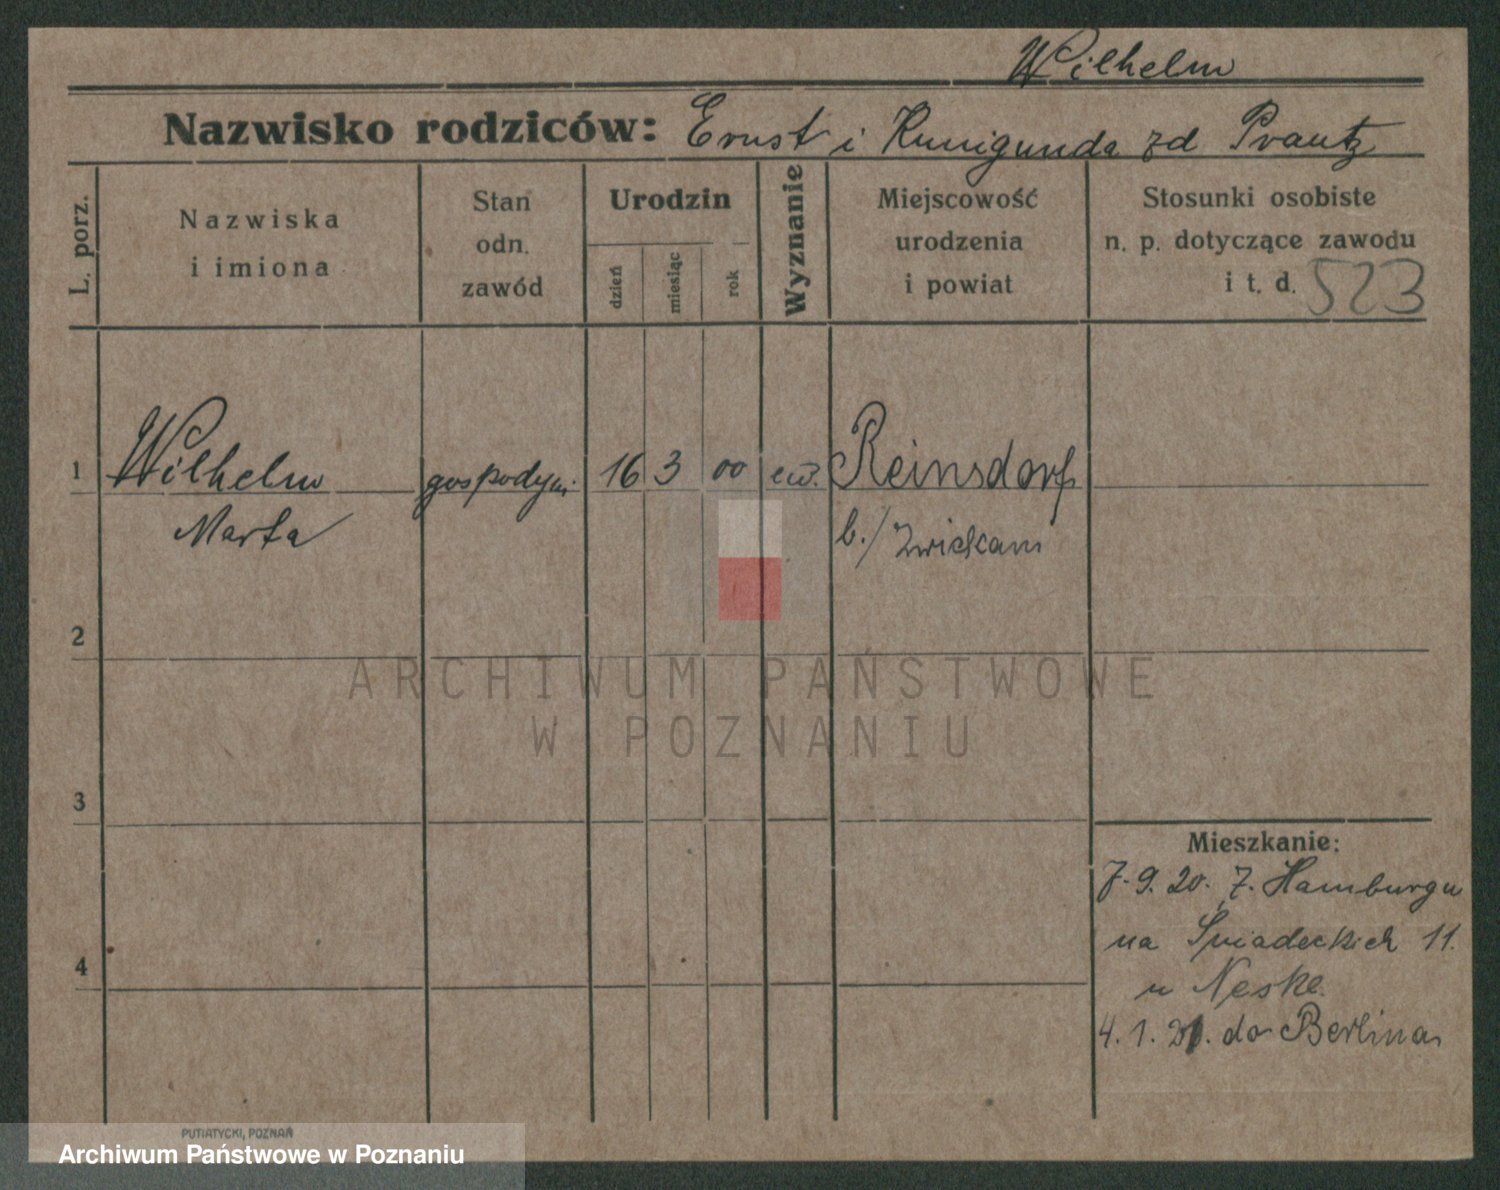 Wilhelm
Nazwisko rodziców: Ernst i Kunigunda zd Prautz
L. porz.
Nazwiska
i imiona
Stan
odn.
zawód
Urodzin
dzień
miesiąc
rok
Wyznanie
Miejscowość
urodzenia
i powiat
Stosunki osobiste
n. p. dotyczące zawodu
i t. d. 523
1 Wilhelm gospodyni. 16 3 00 ew. Reinsdorf
Marta b./Zwickau
2
3
4
Mieszkanie:
7. 9. 20. z. Hamburgu
na Śniadeckich 11.
u Neske.
4. 1. 21. do Berlina
ARCHIWUM PAŃSTWOWE
W POZNANIU
PUTIATYCKI, POZNAŃ
Archiwum Państwowe w Poznaniu